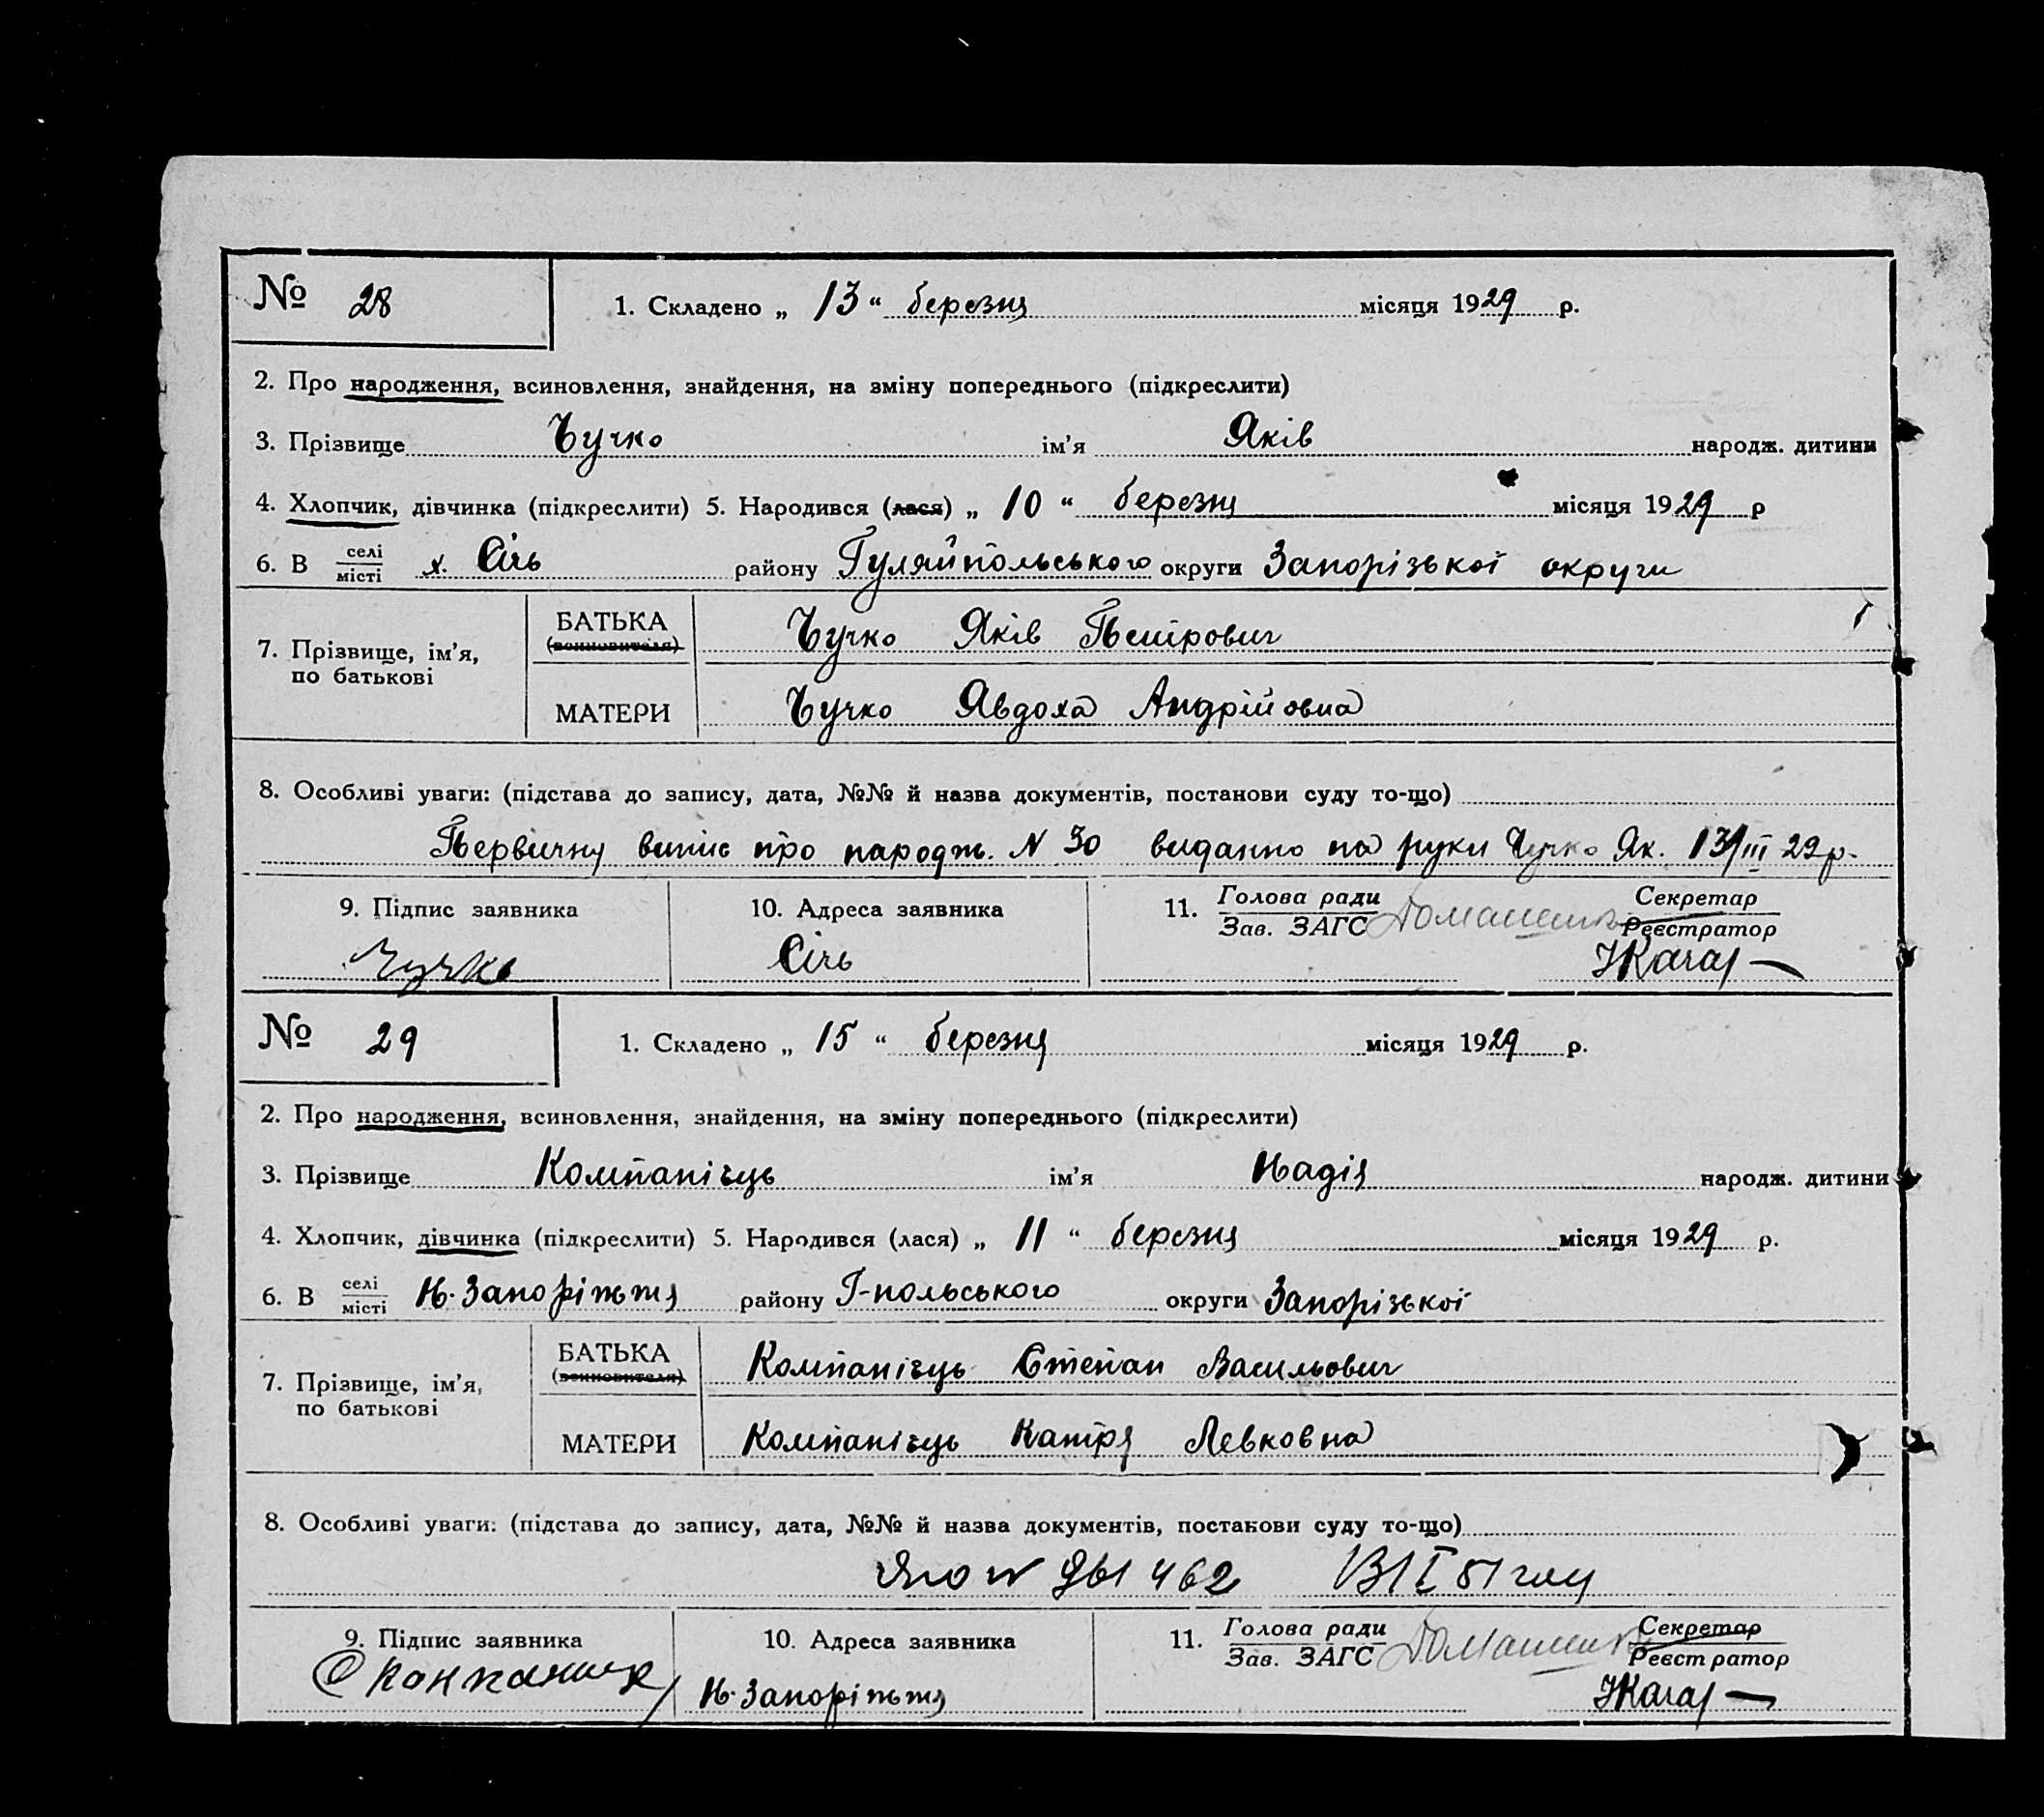 № 28 1. Складено „ 13 “ березня місяця 1929 р.
2. Про народження, всиновлення, знайдення, на зміну попереднього (підкреслити)
3. Прізвище Чучко ім’я Яків народж. дитини
4. Хлопчик, дівчинка (підкреслити) 5. Народився (лася) „ 10 “ березня місяця 1929 р
6. В селі місті х. Січь району Гуляйпольського округи Запорізької округи
7. Прізвище, ім’я, по батькові
БАТЬКА (всиновителя) Чучко Яків Петрович
МАТЕРИ Чучко Явдоха Андрійовна
8. Особливі уваги: (підстава до запису, дата, №№ й назва документів, постанови суду то-що)
Первичну випис про народж. N 30 виданно на руки Чучко Як. 13/III 29 р.
9. Підпис заявника 10. Адреса заявника 11. Голова ради Зав. ЗАГС Секретар Реєстратор
Чучко Січь
№ 29 1. Складено „ 15 “ березня місяця 1929 р.
2. Про народження, всиновлення, знайдення, на зміну попереднього (підкреслити)
3. Прізвище Компанієць ім’я Надія народж. дитини
4. Хлопчик, дівчинка (підкреслити) 5. Народився (лася) „ 11 “ березня місяця 1929 р.
6. В селі місті Н.Запоріжжя району Г-польського округи Запорізької
7. Прізвище, ім’я, по батькові
БАТЬКА (всиновителя) Компанієць Степан Васильович
МАТЕРИ Компанієць Катря Левковна
8. Особливі уваги: (підстава до запису, дата, №№ й назва документів, постанови суду то-що)
462
9. Підпис заявника 10. Адреса заявника 11. Голова ради Зав. ЗАГС Секретар Реєстратор
Н.Запоріжжя